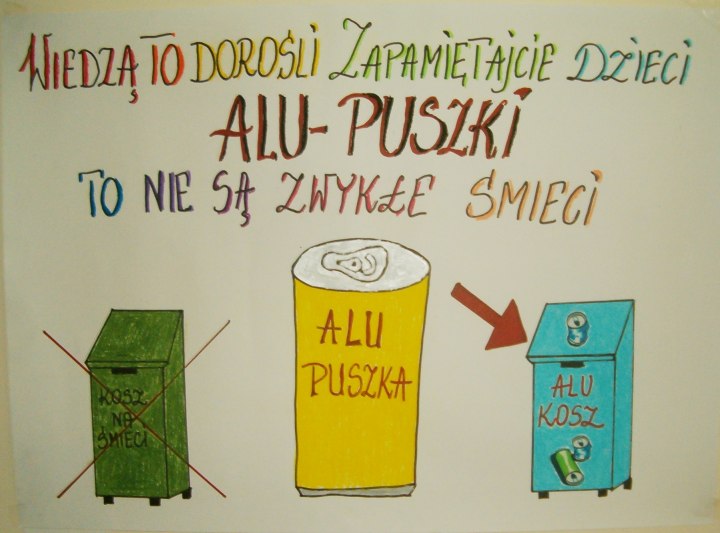 WIEDZĄ TO DOROŚLI ZAPAMIĘTAJCIE DZIECI
ALU-PUSZKI
TO NIE SĄ ZWYKŁE ŚMIECI
KOSZ
NA
ŚMIECI
ALU
PUSZKA
ALU
KOSZ